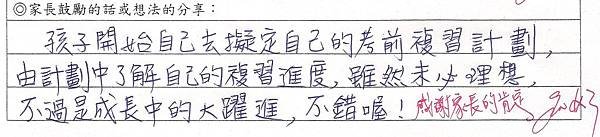 ◎家長鼓勵的話或想法的分享：
孩子開始自己去擬定自己的考前複習計劃，
由計劃中了解自己的複習進度，雖然未必理想，
不過是成長中的大躍進，不錯喔！感謝家長的肯定。